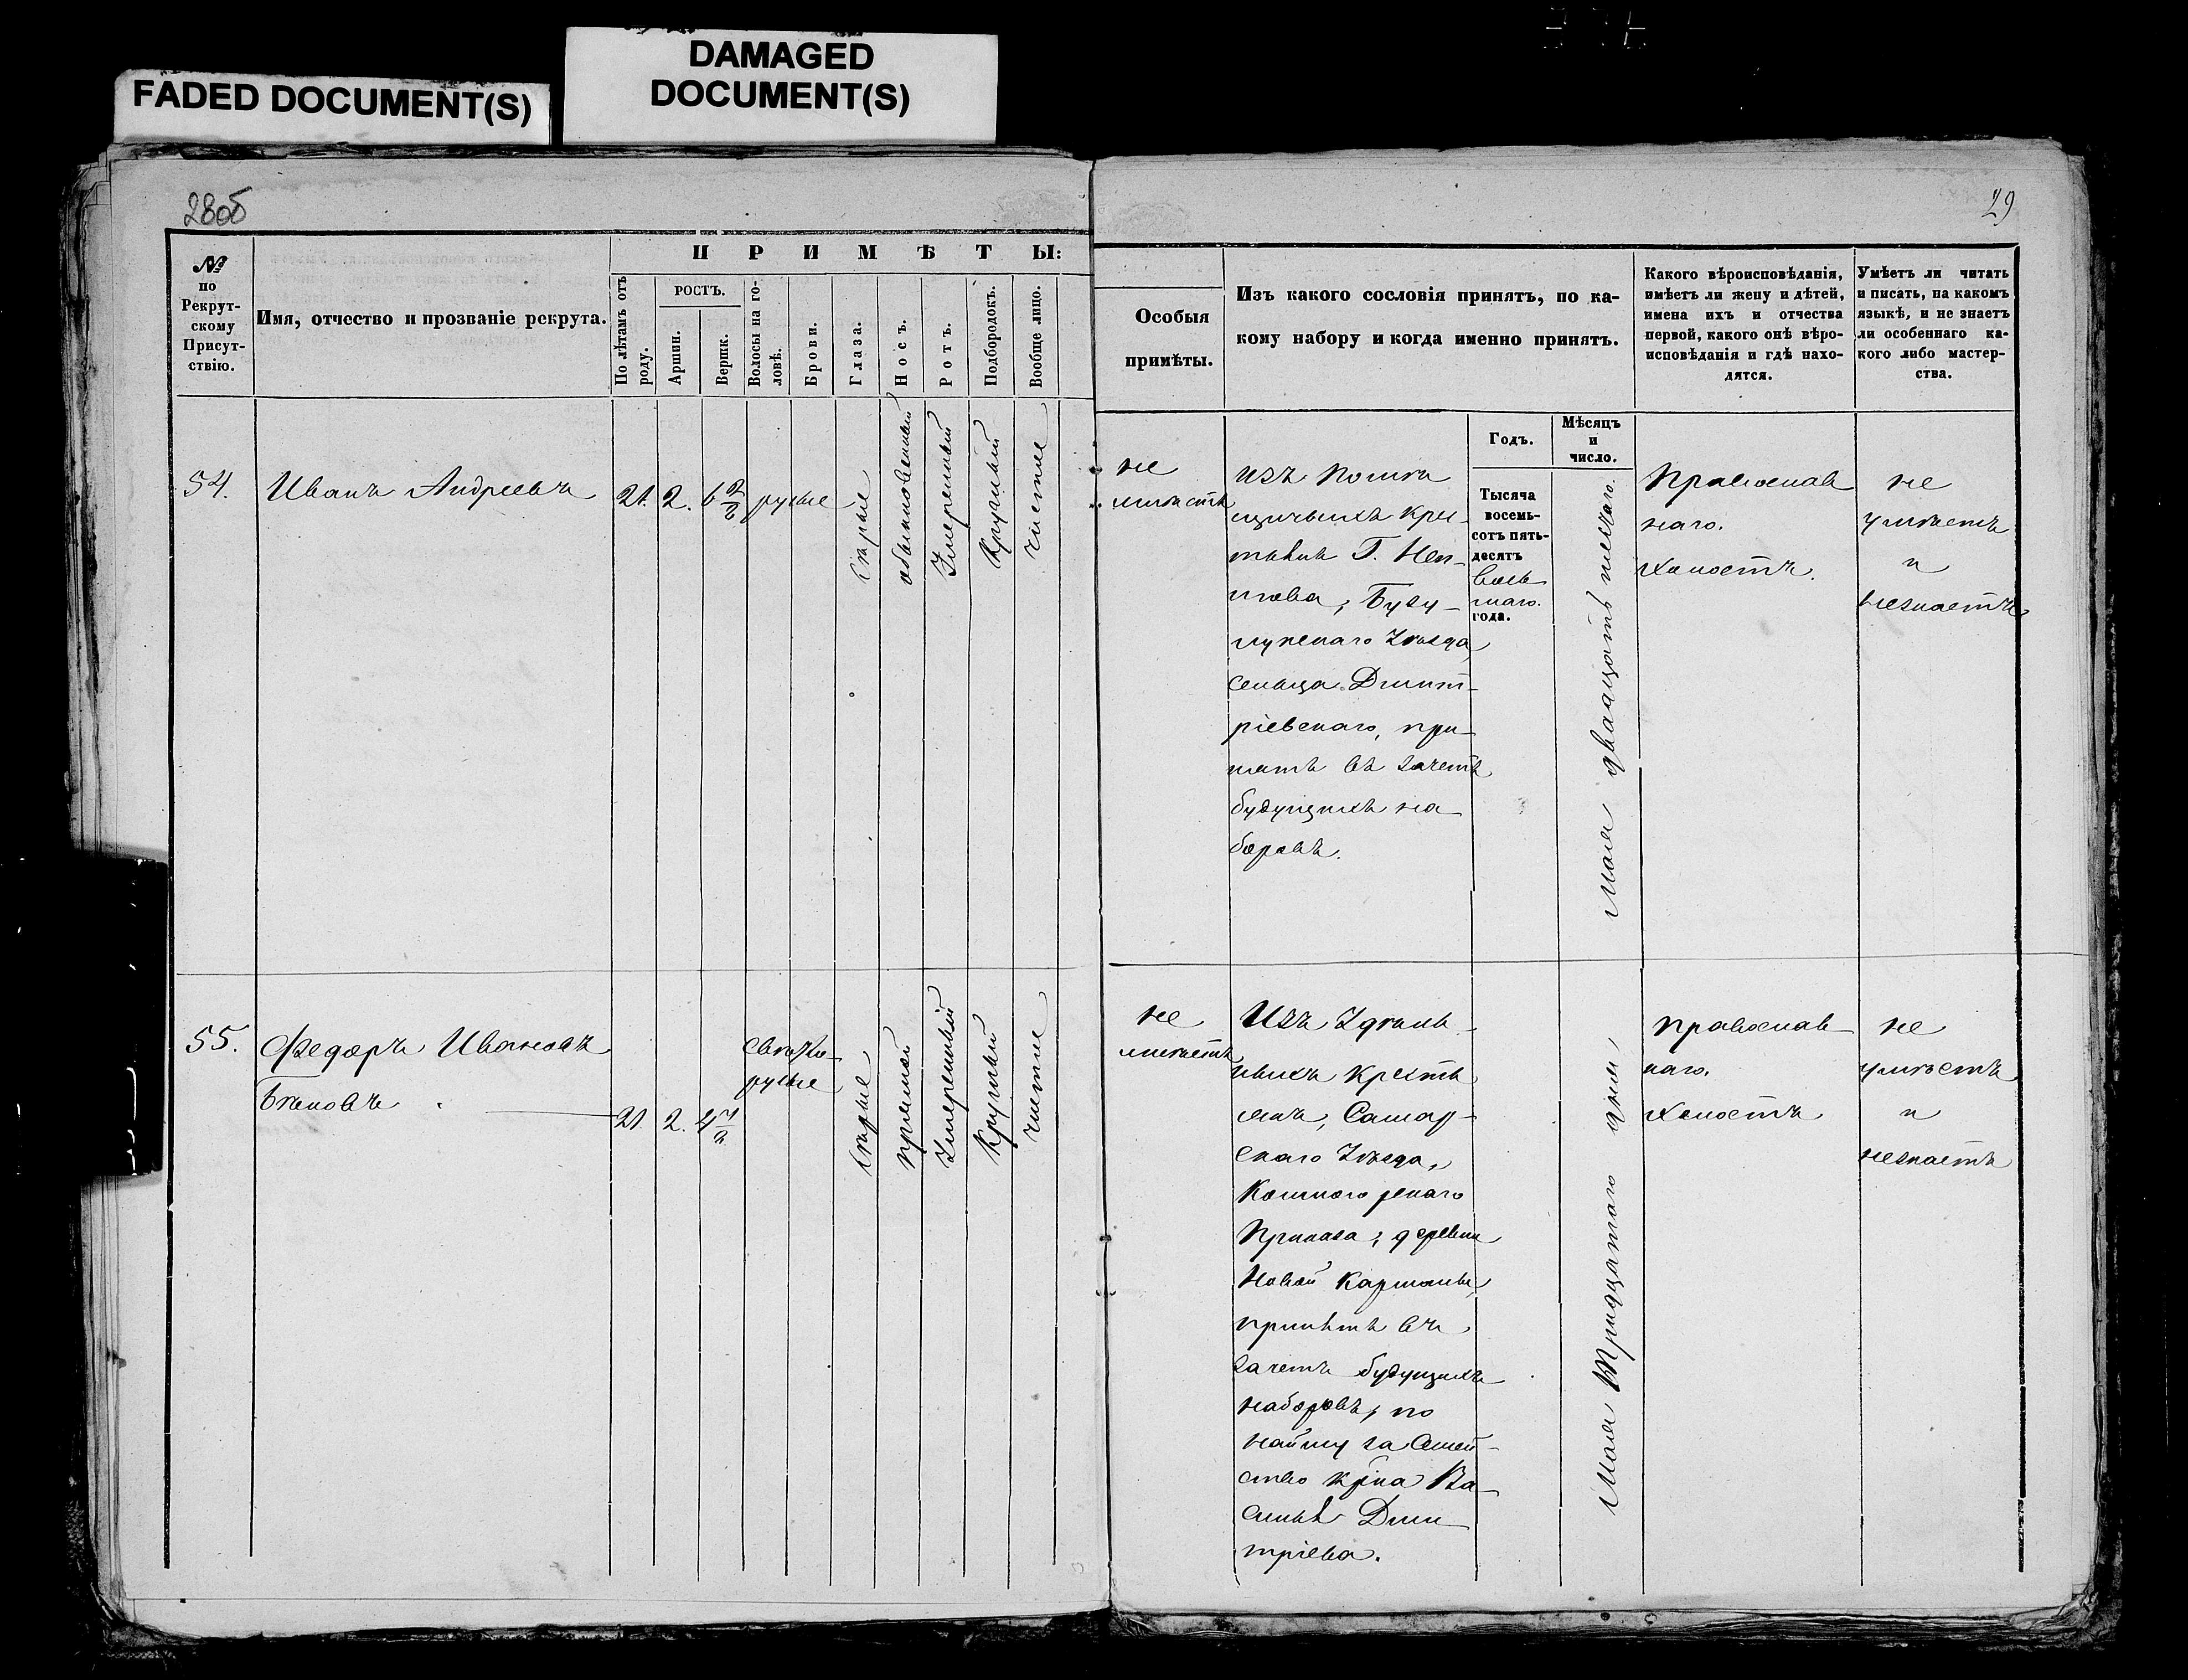 FADED DOCUMENT(S)
DAMAGED
DOCUMENT(S)
28об
29
№
по
Рекрут-
скому
Присут-
ствію.
Имя, отчество и прозваніе рекрута.
ПРИМѢТЫ:
По лѣтамъ отъ
роду.
РОСТЪ.
Аршин.
Вершк.
Волосы на го-
ловѣ.
Брови.
Глаза.
Носъ.
Ротъ.
Подбородокъ.
Вообще лицо.
Особыя
примѣты.
Изъ какого сословія принятъ, по ка-
кому набору и когда именно принятъ.
Какого вѣроисповѣданія,
имѣетъ ли жену и дѣтей,
имена ихъ и отчества
первой, какого онѣ вѣро-
исповѣданія и гдѣ нахо-
дятся.
Умѣетъ ли читать
и писать, на какомъ
языкѣ, и не знаетъ
ли особеннаго ка-
кого либо мастер-
ства.
54.
Иванъ Андреевъ
21.
2.
6 2/8
русые
сѣрые
обыкновенный
Умеренный
Круглый
чистое
не
имѣетъ
изъ Помѣ
щичьихъ кре-
тьянъ Г.
Бузу-
лукскаго Уѣзда,
сельца Дмит-
ріевскаго, при-
нятъ въ зачетъ
будущихъ на
боровъ.
Годъ.
Тысяча
восемь-
сотъ пять-
десятъ
вось
маго.
года.
Мѣсяцъ
и
число.
Мая двадцать
Православ
наго.
Холостъ.
не
умѣетъ
и
незнаетъ
55.
Федоръ Ивановъ
21.
2.
свѣтло-
русые
сѣрые
прямой
Умеренный
Круглый
чистое
не
имѣетъ
Изъ Удѣль-
ныхъ Кресть
янъ, Самар-
скаго Уѣзда,
Приказа, деревни
Новой Кармалы,
принятъ въ
зачетъ будущихъ
наборовъ, по
найму за Семей-
ство кр-на Ва-
силья Дми-
тріева.
Мая Тридцатаго дня
православ-
наго.
Холостъ
не
умѣетъ
и
незнаетъ